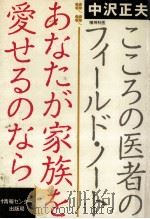 中沢正夫
精神科医
こころの医者の
フィールド・ノート
あなたが家族を
愛せるのなら
情報センター
出版局